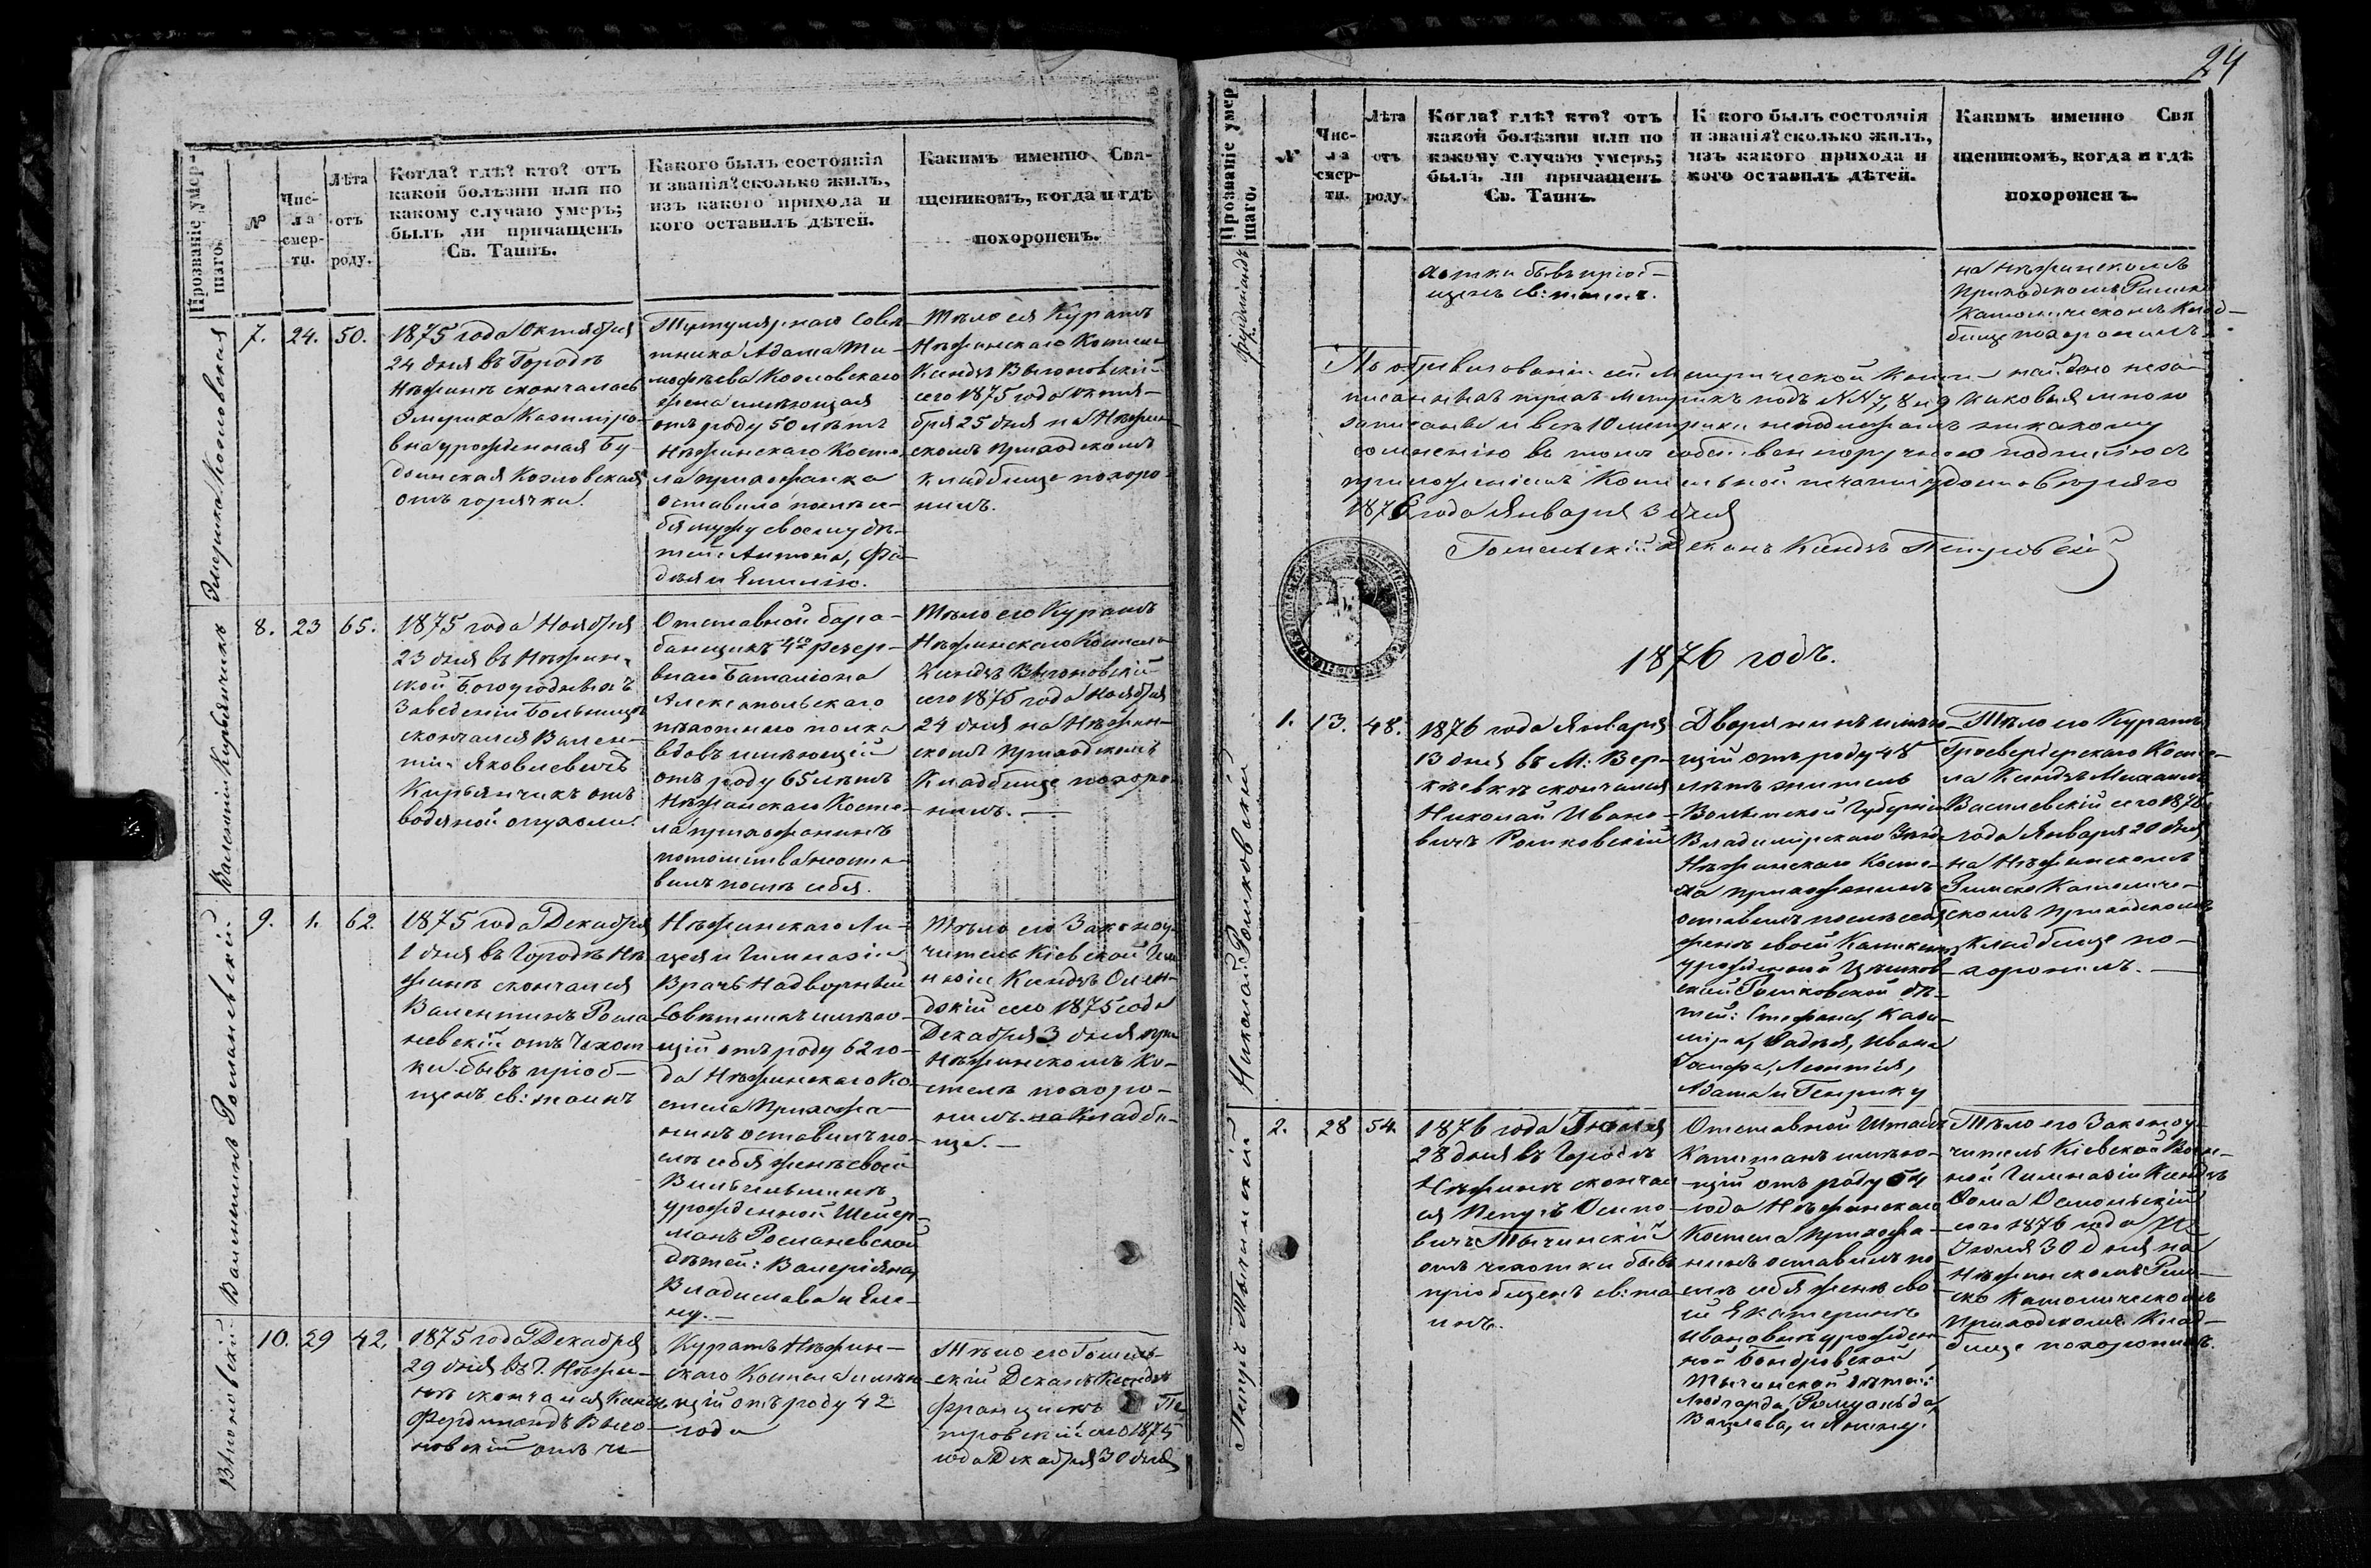 Прозваніе умер-
шаго.
№
Чис-
ла
смер-
ти.
Лѣта
отъ
роду.
Когда? гдѣ? кто? отъ
какой болѣзни или по
какому случаю умеръ;
былъ ли причащенъ
Св. Таинъ.
Какого былъ состоянія
и званія? сколько жилъ,
изъ какого прихода и
кого оставилъ дѣтей.
Какимъ именно Свя-
щеникомъ, когда и гдѣ
похороненъ.
Козловская
7.
24.
50.
1875 года Октября
24 дня въ Городѣ
Нѣжинѣ скончалась
Казиміро-
вна урожденная Бу-
Козловская
отъ горячки.
Титулярнаго Совѣ-
тника Адама Ти-
мофѣева Козловскаго
жена имѣющая
отъ роду 50 лѣтъ
Нѣжинскаго Косте-
ла прихожанка
оставила послѣ се-
бя мужу своему дѣ-
тей: Антона, Фа-
дея и Емилію.
Тѣло ея Куратъ
Нѣжинскаго Костела
Ксендзъ Выгоновскій
сего 1875 года Октя-
бря 25 дня на Нѣжин-
скомъ приходскомъ
кладбище похоро-
нилъ.
Валентій Курьянчикъ
8.
23
65.
1875 года Ноября
23 дня въ Нѣжин-
ской Богоугодныхъ
Заведеній Больницѣ
скончался Вален-
тій Яковлевичъ
Курьянчикъ отъ
водяной опухоли.
Отставной бара-
банщикъ 4го резер-
внаго Баталіона
Алексопольскаго
пѣхотнаго полка
вдовъ имѣющій
отъ роду 65 лѣтъ
Нѣжинскаго Косте-
ла прихожанинъ
потомства неоста-
вилъ послѣ себя.
Тѣло его Куратъ
Нѣжинскаго Костела
Ксендзъ Выгоновскій
сего 1875 года Ноября
24 дня на Нѣжин-
скомъ приходскомъ
Кладбище похоро-
нилъ.
Валентинъ Романевскій
9.
1.
62.
1875 года Декабря
1 дня въ Городѣ Нѣ-
жинѣ скончался
Валентинъ Рома-
невскій отъ Чахот-
ки бывъ пріоб-
щенъ св: таинъ
Нѣжинскаго Ли-
цея и Гимназіи
Врачъ Надворный
Совѣтникъ имѣю-
щій отъ роду 62 го-
да Нѣжинскаго Ко-
стела Прихожа-
нинъ оставилъ по-
слѣ себя женѣ своей
Вильгельминѣ
урожденной Шейер-
манъ Романевской
дѣтей: Валеріяна,
Владислава и Еле-
ну.
Тѣло его Законоу-
читель Кіевской Гим-
назіи Ксендзъ
сего 1875 года
Декабря 3 дня при
Нѣжинскомъ Ко-
стелѣ похоро-
нилъ. на Кладби-
ще.
Выгоновскій
10.
29
42.
1875 года Декабря
29 дня въ Г. Нѣжи-
нѣ скончался Ксендзъ
Фердинандъ Выго-
новскій отъ ча-
Куратъ Нѣжин-
скаго Костела имѣю-
щій отъ роду 42
года
Тѣло его Гомель-
скій Деканъ Ксендзъ
Францискъ Пе-
тровскій сего 1875
года Декабря 30 дня
24
Прозваніе умер
шаго.
№
Чис-
ла
смер-
ти.
Лѣта
отъ
роду.
Когда? гдѣ? кто? отъ
какой болѣзни или по
какому случаю умеръ;
былъ ли причащенъ
Св. Таинъ.
Какого былъ состоянія
и званія? сколько жилъ,
изъ какого прихода и
кого оставилъ дѣтей.
Какимъ именно Свя
щеникомъ, когда и гдѣ
похороненъ.
Фердинандъ
хотки бывъ пріоб-
щенъ св: таинъ.
на Нѣжинскомъ
Приходскомъ Римско
Католическомъ Клад-
бище похоронилъ.
По обревизованіи сей Метрической Книги найдено неза-
писанныхъ трехъ метрикъ подъ №№ 7, 8 и 9 каковыя мною
записаны и всѣ 10 метрики неподлежатъ никакому
сомненію въ томъ собственноручною подписью съ
приложеніемъ Костельной печати удостовѣряю
1876 года Января 3 дня
Гомельскій Деканъ Ксендзъ Петровскій
1876 годъ.
Николай Ромковскій
1.
13.
48.
1876 года Января
13 дня въ М: Вер-
кіевкѣ скончался
Николай Ивано-
вичъ Ромковскій
Дворянинъ имѣю-
щій отъ роду 48
лѣтъ житель
Волынской Губерніи
Владимірскаго Уѣзда
Нѣжинскаго Косте-
ла прихожанинъ
оставилъ послѣ себя
женѣ своей
урожденной
Ромковской дѣ-
тей: Стефана, Кази-
міра, Фадѣя, Ивана
Іосифа, Леонтія,
Адама и Генрику
Тѣло его Куратъ
Косте-
ла Ксендзъ Михаилъ
Василевскій сего 1876
года Января 20 дня
на Нѣжинскомъ
Римско Католиче-
скомъ приходскомъ
Кладбище по-
хоронилъ.
Петръ Тычинскій
2.
28
54.
1876 года Іюля
28 дня въ Городѣ
Нѣжинѣ скончал
ся Петръ Осипо-
вичъ Тычинскій
отъ чахотки бывъ
пріобщенъ св: та-
инъ.
Отставной Штабсъ
Капитанъ имѣю-
щій отъ роду 54
года Нѣжинскаго
Костела прихожа-
нинъ оставилъ по-
слѣ себя женѣ сво-
ей Екатеринѣ
Ивановнѣ урожден-
ной Бондровской
Тычинской дѣтей:
Люdгарда, Ромуальда,
Вацлава, и Янину.
Тѣло его Законоу-
читель Кіевской Воен-
ной Гимназіи Ксендзъ
Фома
сего 1876 года
Іюля 30 дня на
Нѣжинскомъ Рим-
ско Католическомъ
приходскомъ Клад-
бище похоронилъ.